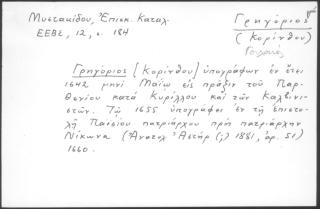 Μυστακίδου, Ἐπισκ. Καταλ.
ΕΕΒΣ, 12, σ. 184
Γρηγόριος
(Κορίνθου)
Γρηγόριος [Κορίνθου] ὑπογράφων ἐν ἔτει
1642 μηνὶ Μαΐῳ εἰς πρᾶξιν τοῦ Παρ-
θενίου κατὰ Κυρίλλου καὶ τῶν Καλβινι-
στῶν. Τῷ 1655 ὑπογράφει ἐν τῇ ἐπιστο-
λῇ Παϊσίου πατριάρχου πρὸς πατριάρχην
Νίκωνα (Ἀνατολ. Ἀστὴρ (;) 1881, ἀρ. 51)
1660.